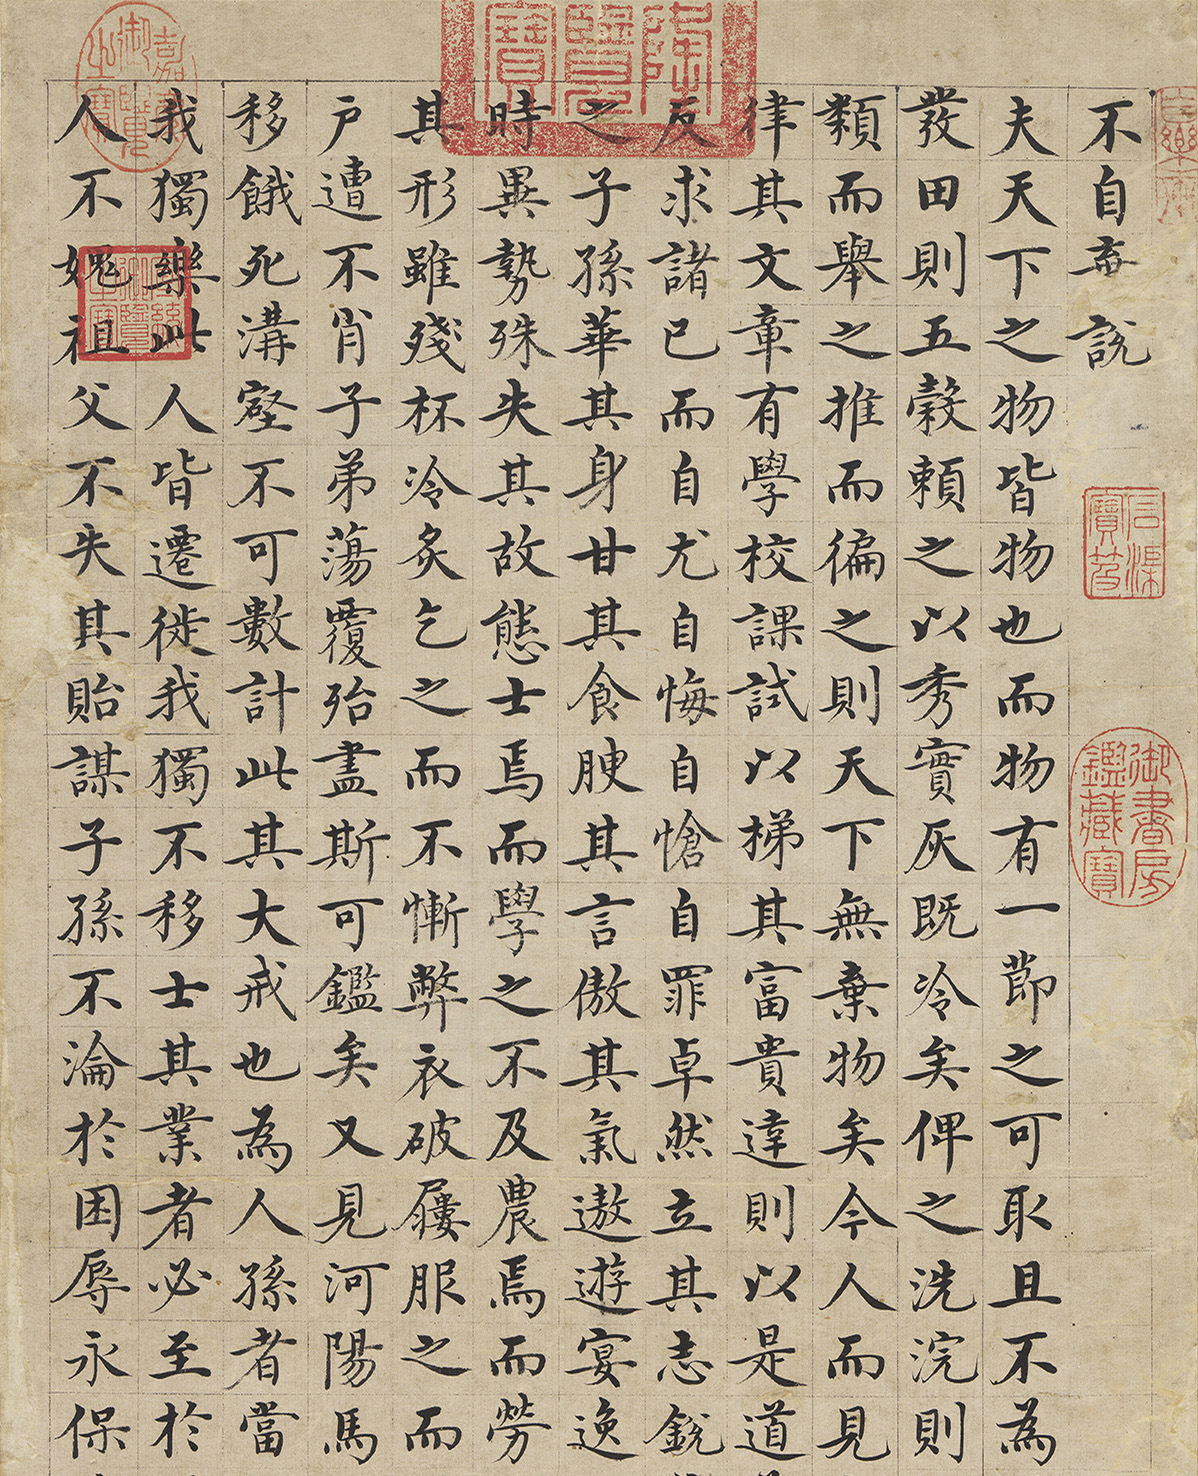 不自棄說
夫天下之物皆物也而物有一節之可取且不為
發田則五穀賴之以秀實灰既冷矣俾之洗浣則
類而舉之推而徧之則天下無棄物矣今人而見
律其文章有學校課試以梯其富貴達則以是道
反求諸已而自尤自悔自愴自罪卓然立其志銳
之子孫華其身甘其食腴其言傲其氣遨遊宴逸
時異勢殊失其故態士焉而學之不及農焉而勞
其形雖殘杯冷炙乞之而不慚弊衣破屨服之而
戶遭不肖子弟蕩覆殆盡斯可鑑矣又見河陽馬
移餓死溝壑不可數計此其大戒也為人孫者當
我獨樂此人皆遷徙我獨不移士其業者必至於
人不媿祖父不失其貽謀子孫不淪於困辱永保
御書房鑑藏寶